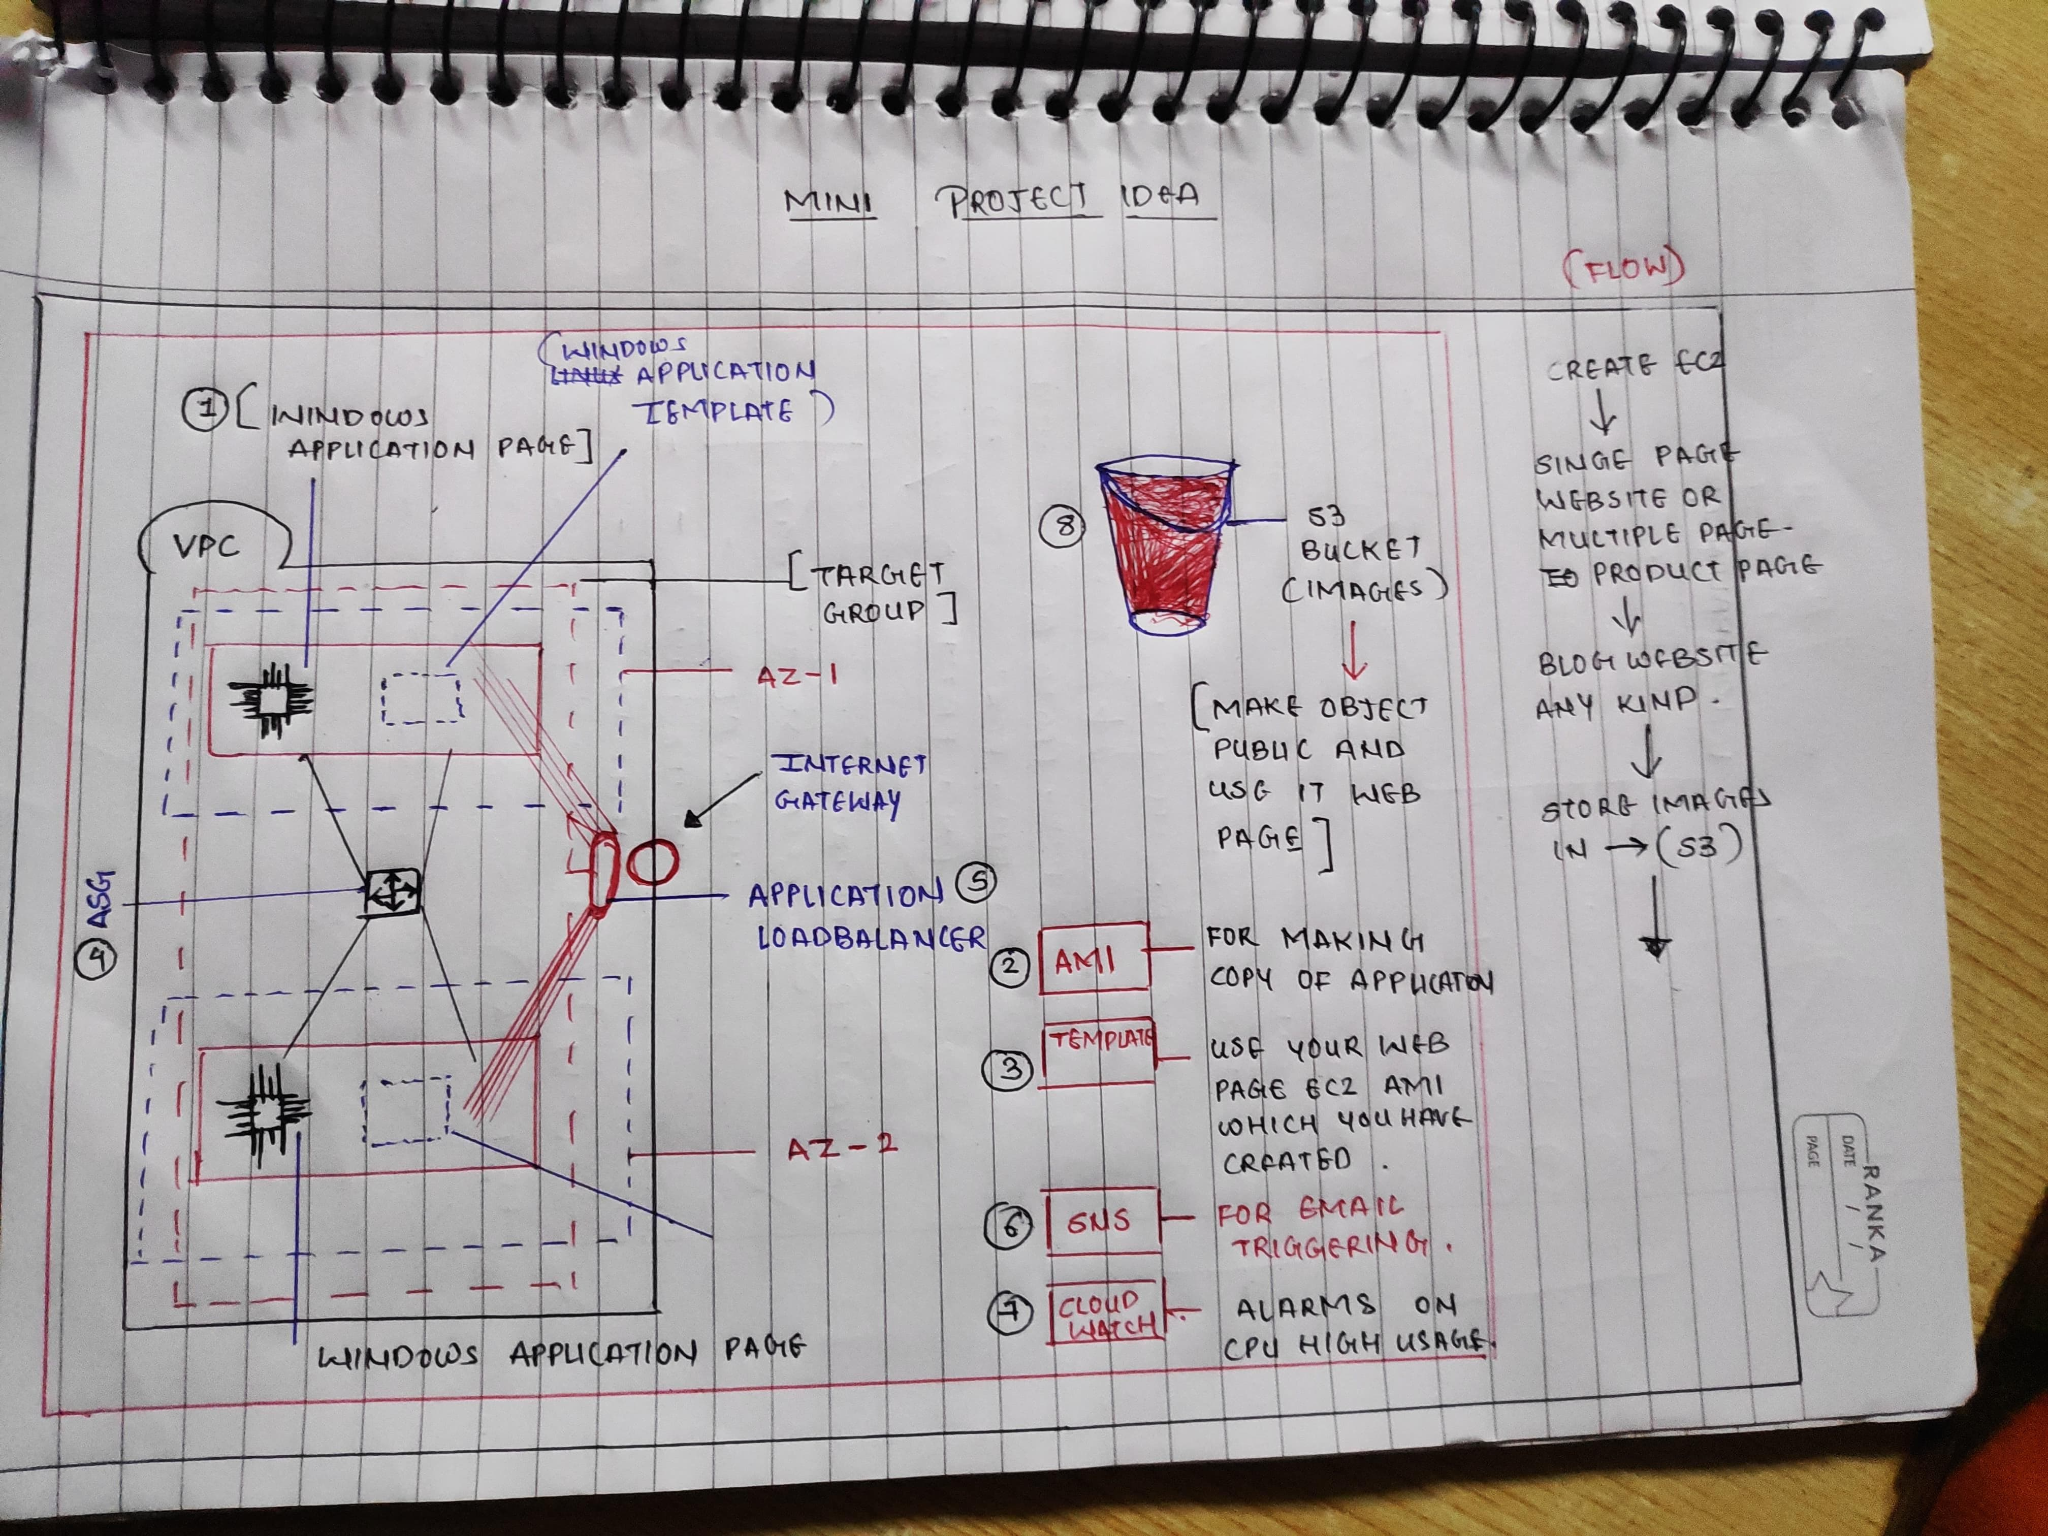 MINI PROJECT IDEA
(FLOW)
(WINDOWS
LINUX APPLICATION
TEMPLATE)
1 [WINDOWS
APPLICATION PAGE]
VPC
[TARGET
GROUP]
AZ-1
INTERNET
GATEWAY
4 ASG
APPLICATION 5
LOADBALANCER
AZ-2
WINDOWS APPLICATION PAGE
8
S3
BUCKET
(IMAGES)
[MAKE OBJECT
PUBLIC AND
USE IT WEB
PAGE]
2 AMI
FOR MAKING
COPY OF APPLICATON
3 TEMPLATE
USE YOUR WEB
PAGE EC2 AMI
WHICH YOU HAVE
CREATED.
6 SNS
FOR EMAIL
TRIGGERING.
7 CLOUD
WATCH
ALARMS ON
CPU HIGH USAGE.
CREATE EC2
SINGE PAGE
WEBSITE OR
MULTIPLE PAGE-
TO PRODUCT PAGE
BLOG WEBSITE
ANY KIND.
STORE IMAGES
IN → (S3)
RANKA
DATE / /
PAGE